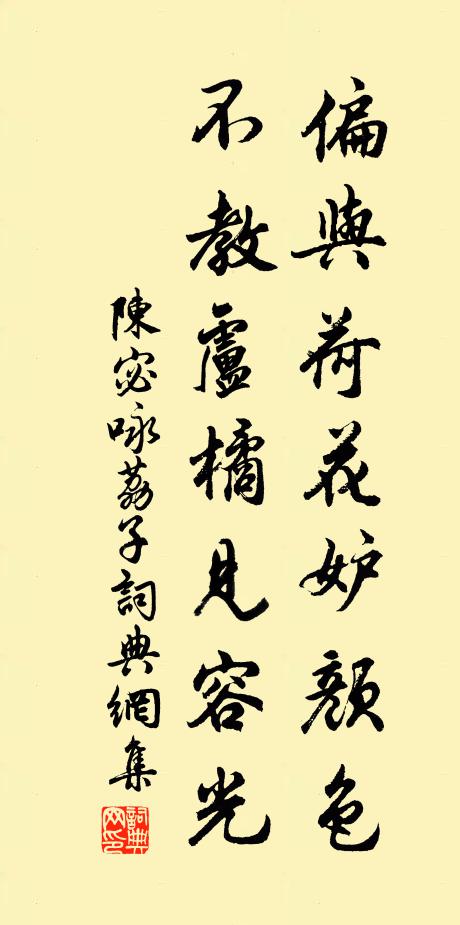 偏與荷花妒顏色
不教盧橘見容光
陳宓咏荔子詞典網集
詞典網印